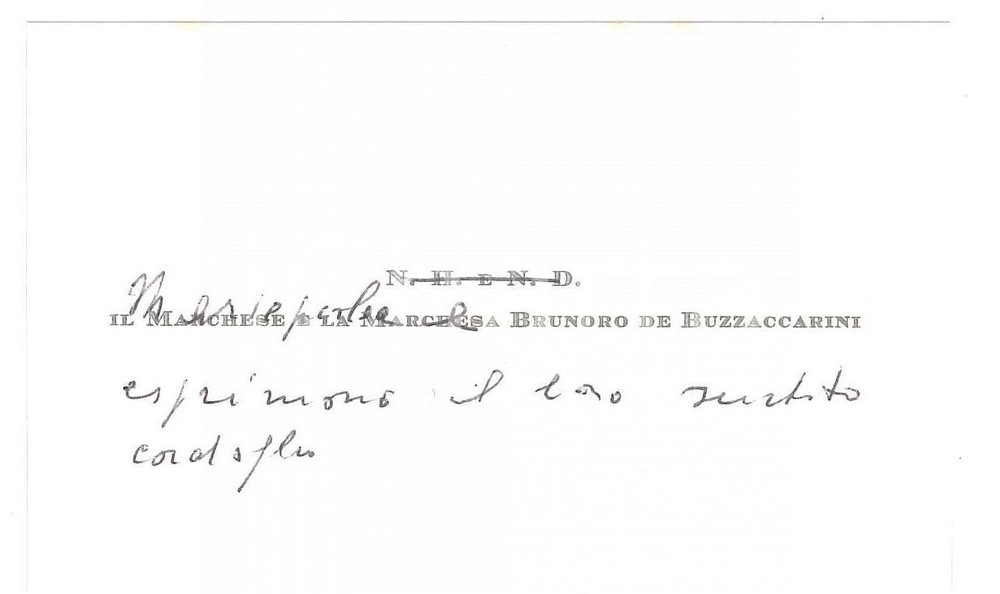 N. H. E N. D.
Mariapaola e
IL MARCHESE E LA MARCHESA BRUNORO DE BUZZACCARINI
esprimono il loro sentito
cordoglio